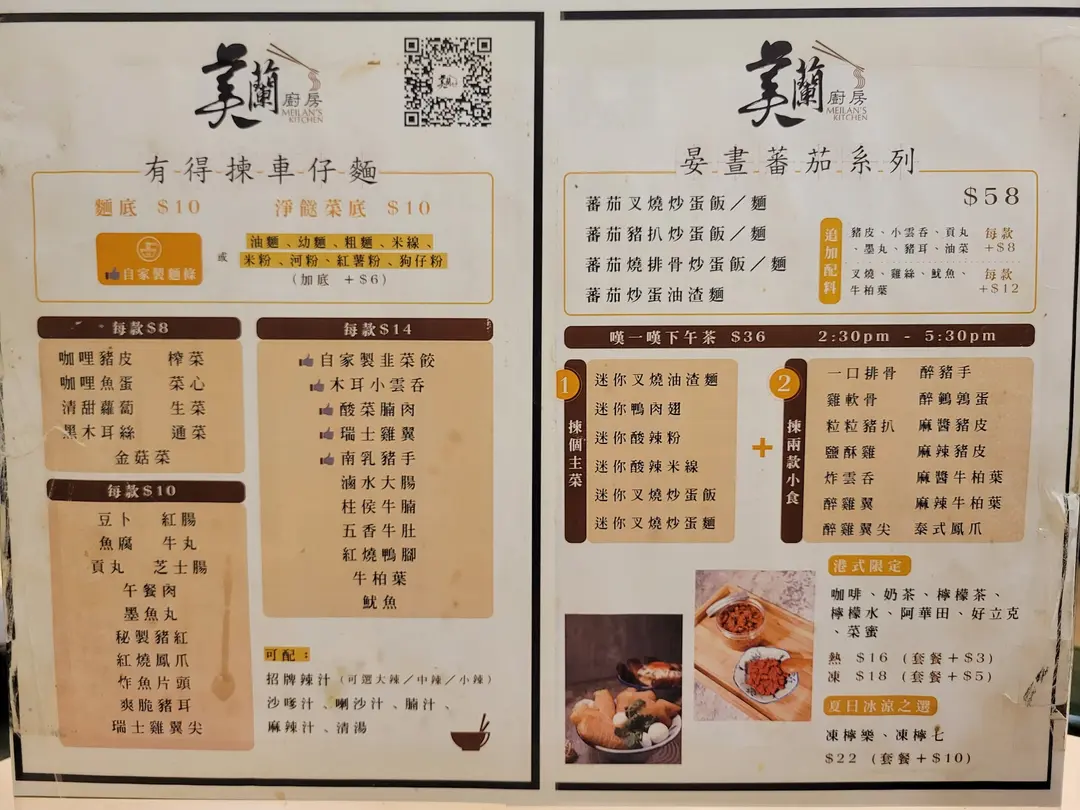 美蘭廚房
MEILAN'S
KITCHEN
有得揀車仔麵
麵底 $10 淨餸菜底 $10
自家製麵條
或
油麵、幼麵、粗麵、米線、
米粉、河粉、紅薯粉、狗仔粉
(加底 +$6)
每款$8
咖哩豬皮 榨菜
咖哩魚蛋 菜心
清甜蘿蔔 生菜
黑木耳絲 通菜
金菇菜
每款$10
豆卜 紅腸
魚腐 牛丸
貢丸 芝士腸
午餐肉
墨魚丸
秘製豬紅
紅燒鳳爪
炸魚片頭
爽脆豬耳
瑞士雞翼尖
每款$14
自家製韭菜餃
木耳小雲吞
酸菜腩肉
瑞士雞翼
南乳豬手
滷水大腸
桂侯牛腩
五香牛肚
紅燒鴨腳
牛柏葉
魷魚
可配：
招牌辣汁（可選大辣／中辣／小辣）
沙嗲汁、喇沙汁、腩汁、
麻辣汁、清湯
美蘭廚房
MEILAN'S
KITCHEN
晏晝蕃茄系列
$58
蕃茄叉燒炒蛋飯／麵
蕃茄豬扒炒蛋飯／麵
蕃茄燒排骨炒蛋飯／麵
蕃茄炒蛋油渣麵
追加配料
豬皮、小雲吞、貢丸 每款
、墨丸、豬耳、油菜 +$8
叉燒、雞絲、魷魚、 每款
牛柏葉 +$12
嘆一嘆下午茶 $36 2:30pm - 5:30pm
1
揀個主菜
迷你叉燒油渣麵
迷你鴨肉翅
迷你酸辣粉
迷你酸辣米線
迷你叉燒炒蛋飯
迷你叉燒炒蛋麵
+
2
揀兩款小食
一口排骨 醉豬手
雞軟骨 醉鵪鶉蛋
粒粒豬扒 麻醬豬皮
鹽酥雞 麻辣豬皮
炸雲吞 麻醬牛柏葉
醉雞翼 麻辣牛柏葉
醉雞翼尖 泰式鳳爪
港式限定
咖啡、奶茶、檸檬茶、
檸檬水、阿華田、好立克
、菜蜜
熱 $16 (套餐+$3)
凍 $18 (套餐+$5)
夏日冰涼之選
凍檸樂、凍檸七
$22 (套餐+$10)